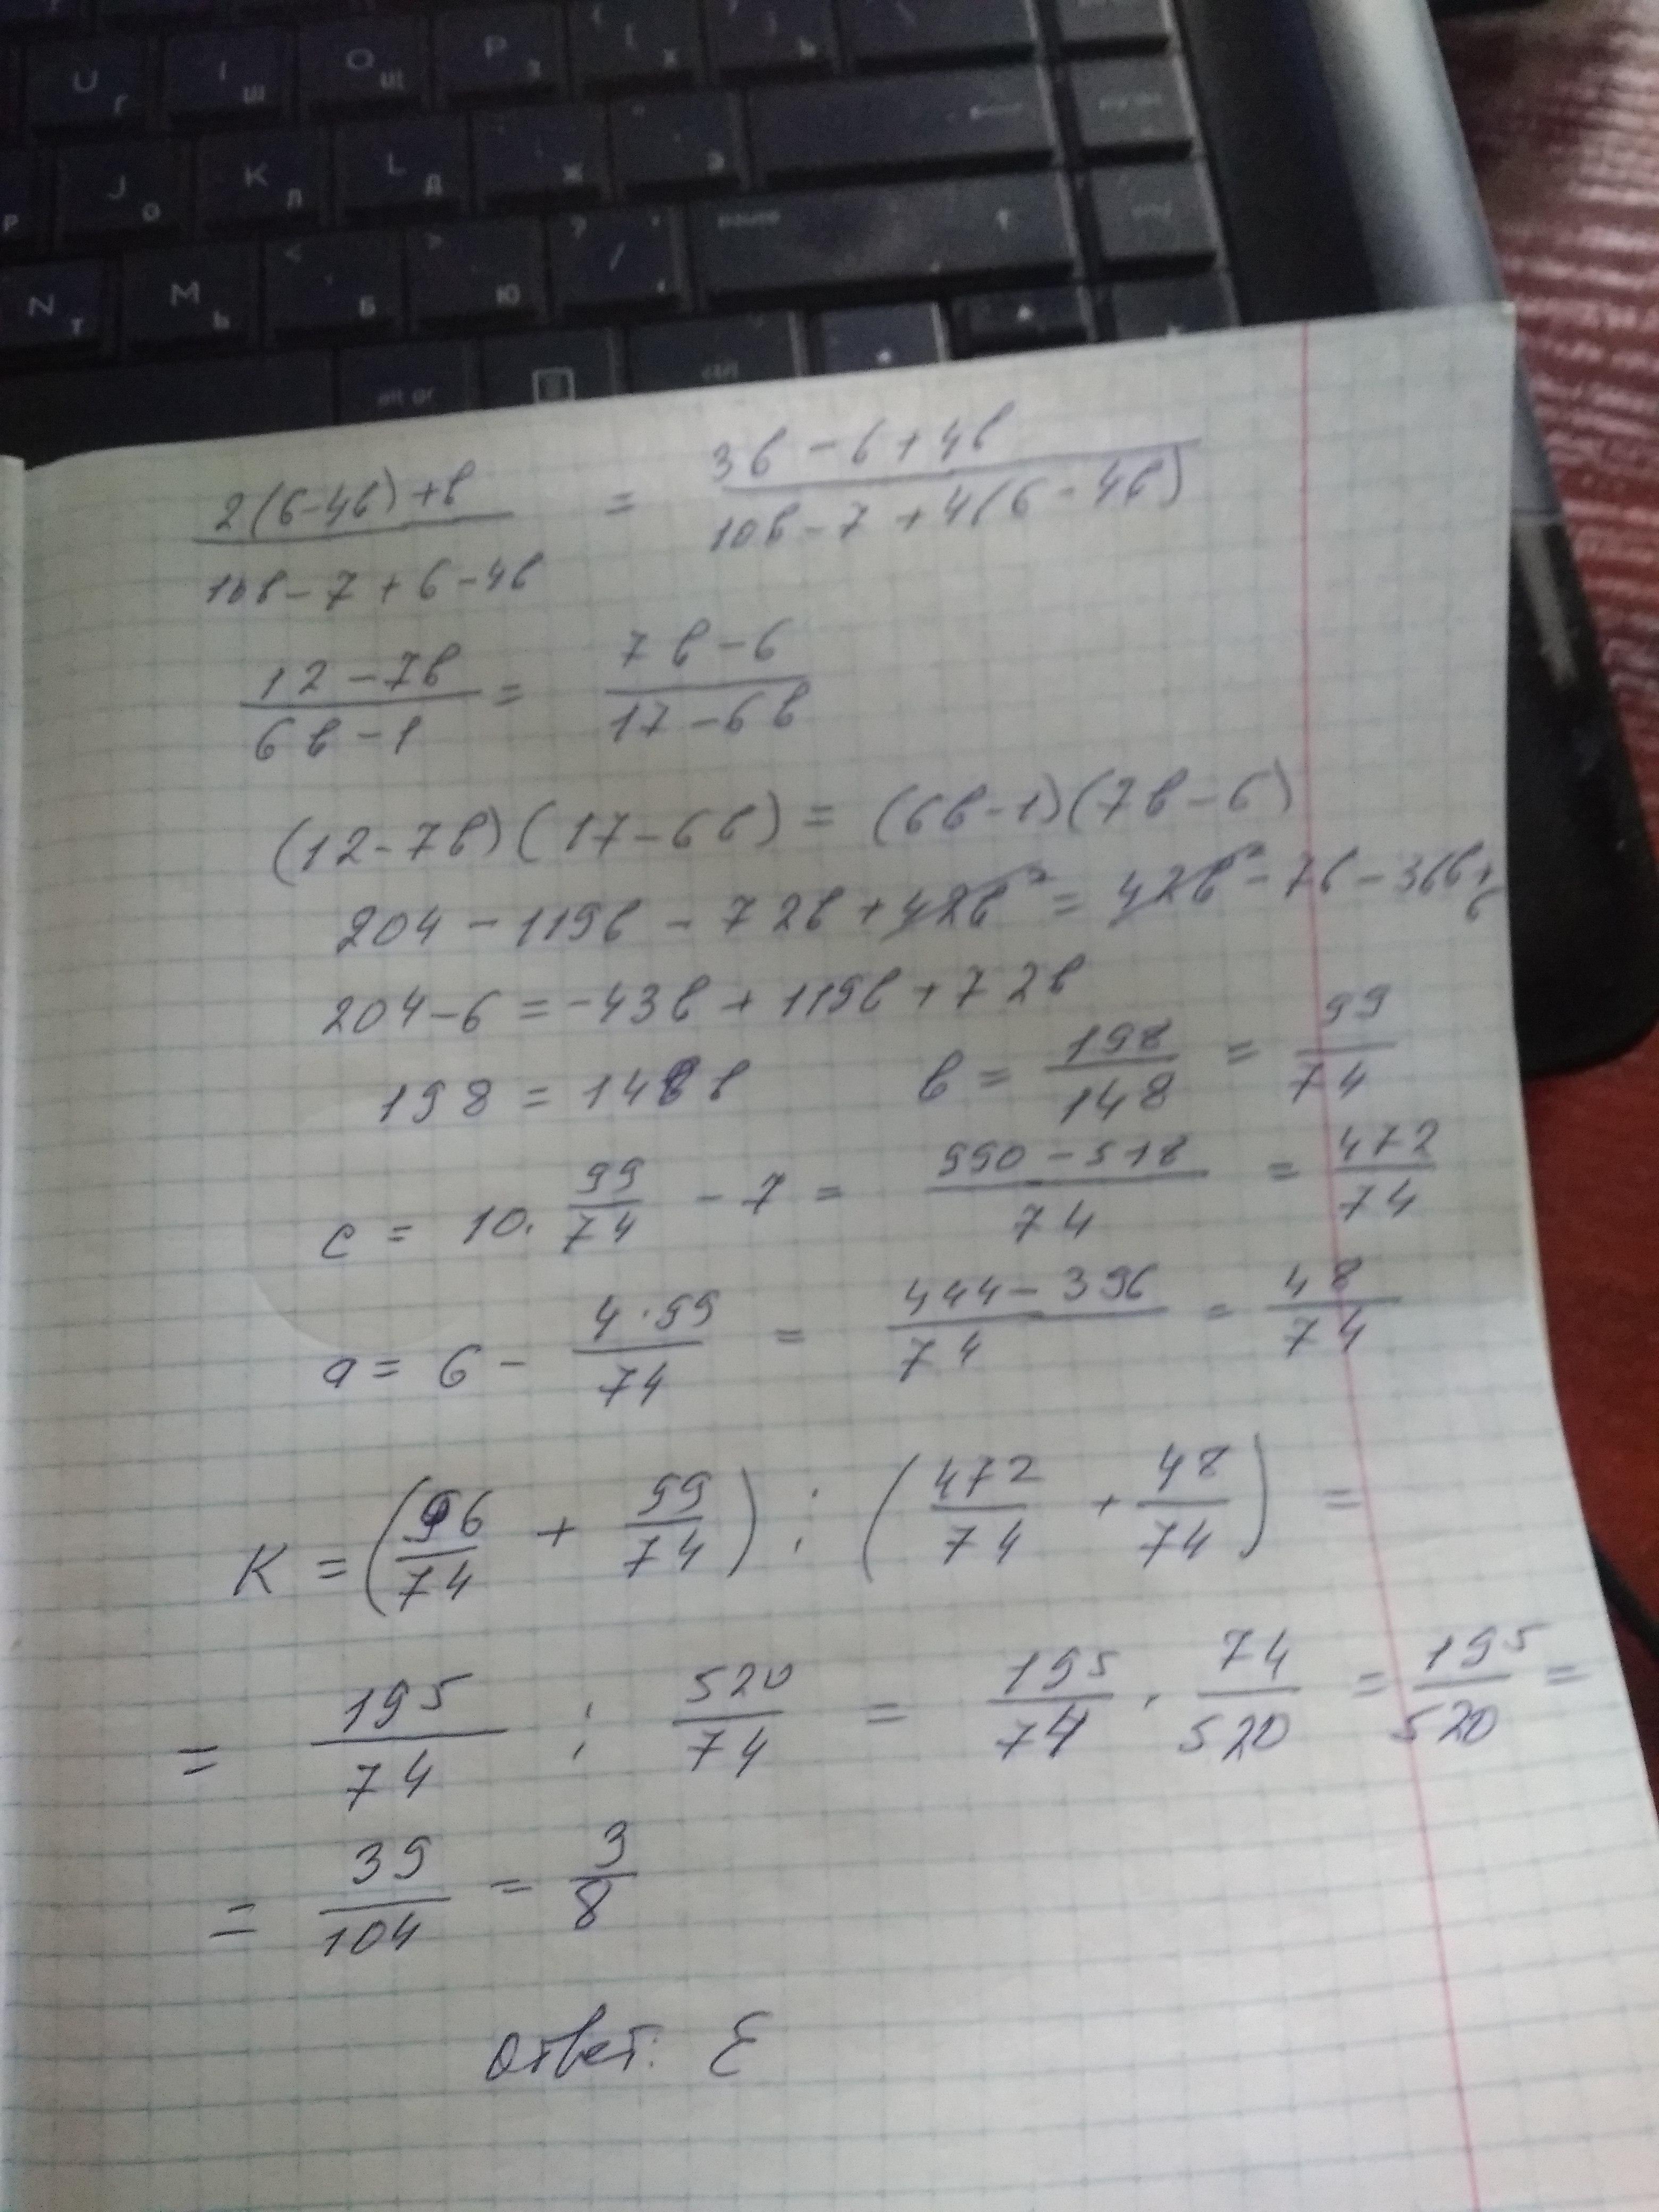 U Г I Ш O Щ P З { [ Х } ] Ъ \
P J О K Л L Д : ; Ж " ' Э
N Т M Ь < , Б > . Ю ? / . pause
alt gr ctrl
2(6-4в)+в / 10в-7+6-4в = 3в-6+4в / 10в-7+4(6-4в)
12-7в / 6в-1 = 7в-6 / 17-6в
(12-7в)(17-6в) = (6в-1)(7в-6)
204-119в-72в+42в² = 42в²-7в-36в+6
204-6=-43в+119в+72в
198=148в в=198/148=99/74
с=10·99/74-7=990-518/74=472/74
а=6-4·99/74=444-396/74=48/74
К=(96/74+99/74):(472/74+48/74)=
=195/74:520/74=195/74·74/520=195/520=
=39/104=3/8
Ответ: Е